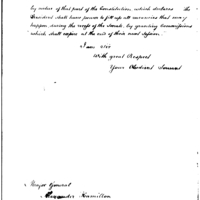 by virtue of that part of the Constitution which declares the
President shall have power to fill up all vacancies that may
happen during the recess of the Senate, by granting Commissions
which shall expire at the end of their next Session.
I am also
With great Respect
Your Obedient Servant
Major General
Alexander Hamilton